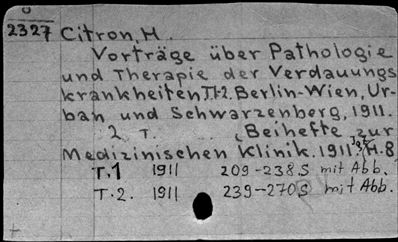 2327 Citron, H.
Vorträge über Pathologie
und Therapie der Verdauungs
krankheiten T.1-2. Berlin-Wien, Ur-
ban und Schwarzenberg, 1911.
2 T. „Beihefte zur
Medizinischen Klinik. 1911. H. 8
T. 1 1911 209-238 S mit Abb.
T. 2. 1911 239-270 S mit Abb.